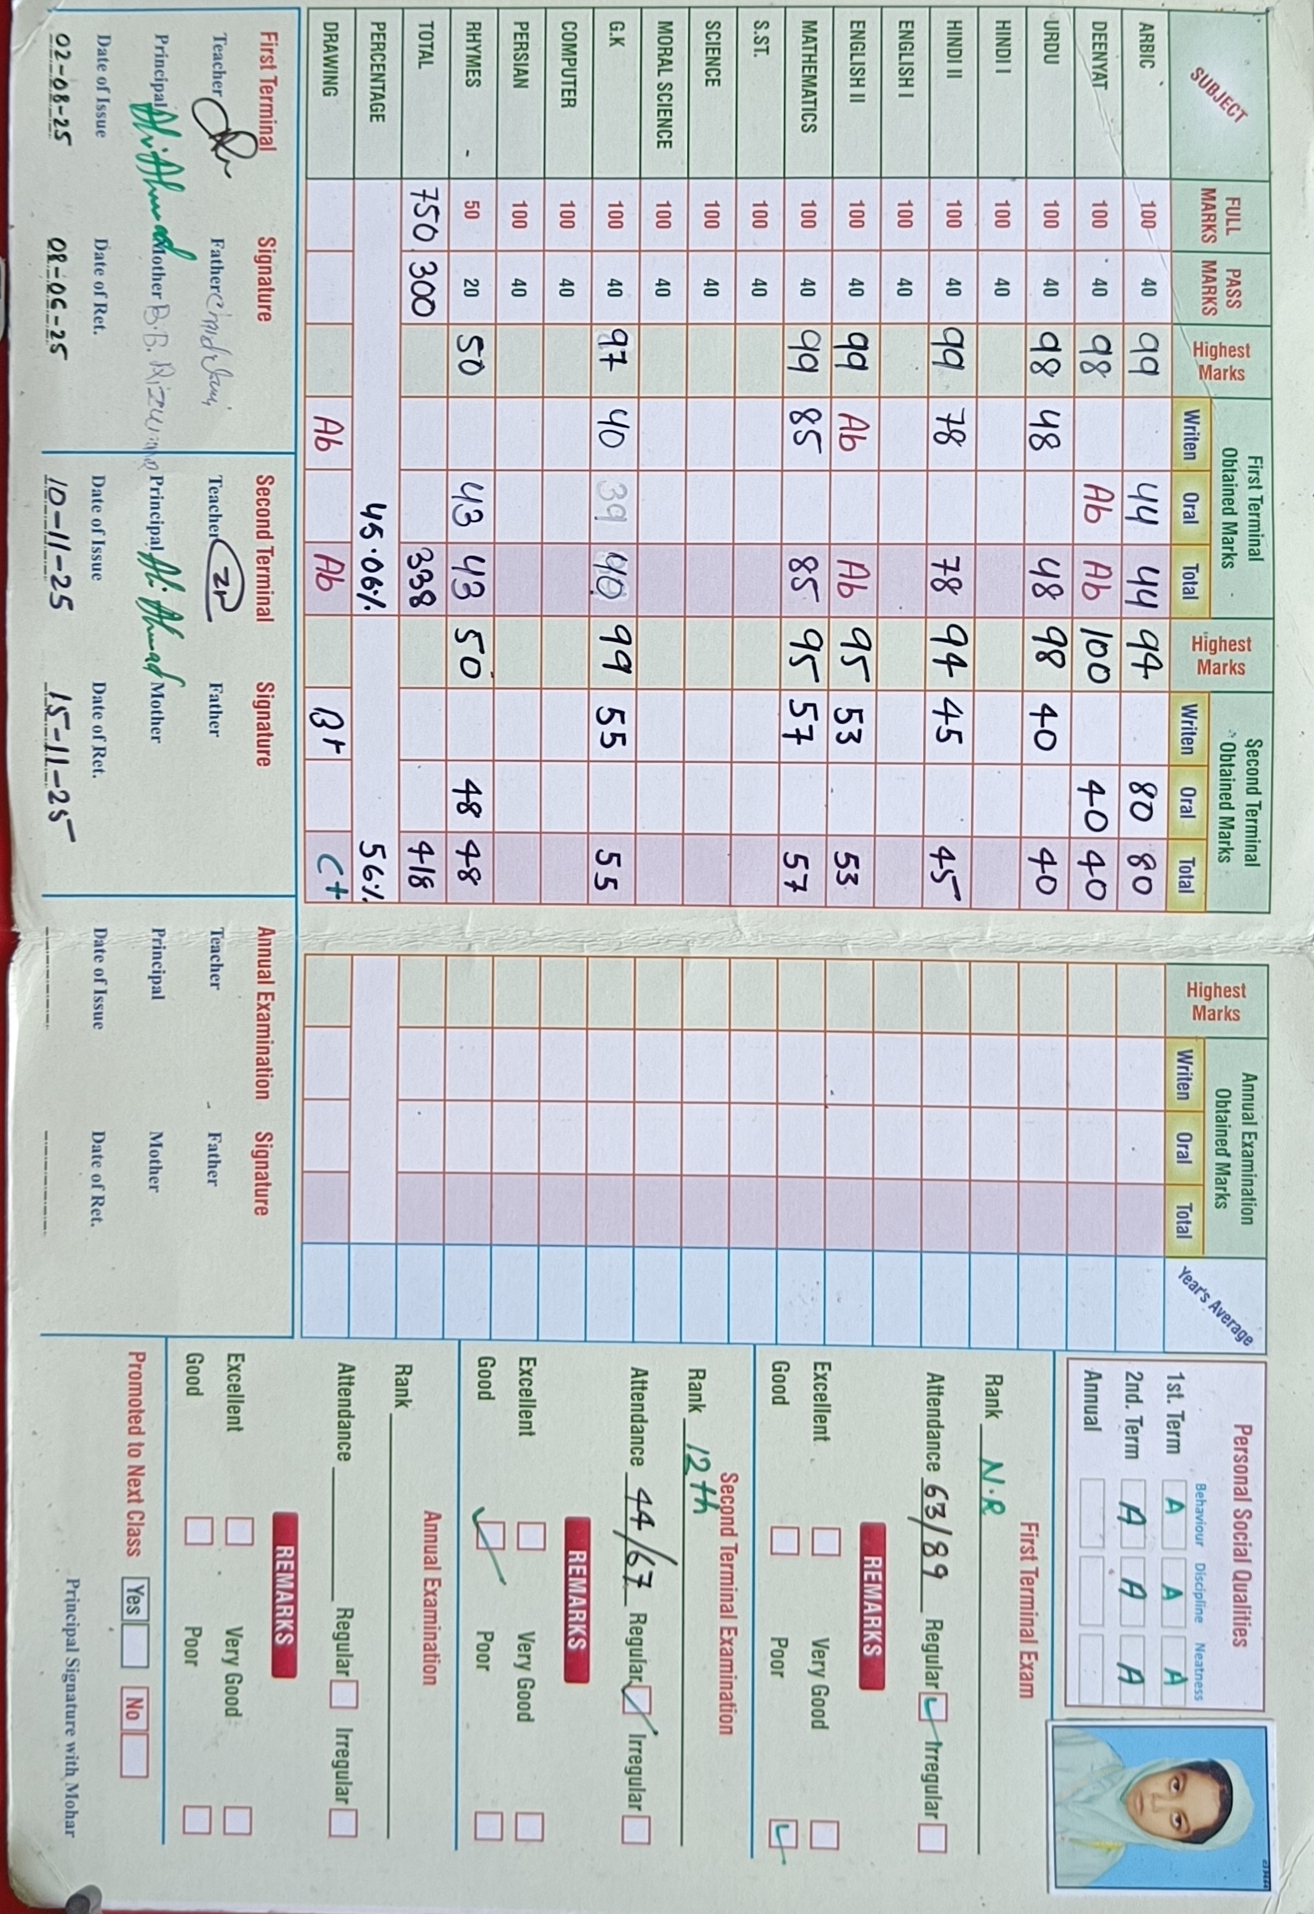 SUBJECT FULL MARKS PASS MARKS Highest Marks First Terminal Obtained Marks Writen Oral Total Highest Marks Second Terminal Obtained Marks Writen Oral Total Highest Marks Annual Examination Obtained Marks Writen Oral Total Year's Average
ARBIC 100 40 99 44 44 94 80 80
DEENYAT 100 40 98 Ab Ab 100 40 40
URDU 100 40 98 48 48 98 40 40
HINDI I 100 40
HINDI II 100 40 99 78 78 94 45 45
ENGLISH I 100 40
ENGLISH II 100 40 99 Ab Ab 95 53 53
MATHEMATICS 100 40 99 85 85 95 57 57
S.ST. 100 40
SCIENCE 100 40
MORAL SCIENCE 100 40
G.K 100 40 97 40 39 40 99 55 55
COMPUTER 100 40
PERSIAN 100 40
RHYMES 50 20 50 43 43 50 48 48
TOTAL 750 300 338 418
PERCENTAGE 45.06% 56%
DRAWING Ab Ab B+ C+
First Terminal Signature
Teacher Father
Principal Ali Ahmad Mother
Date of Issue Date of Ret.
02-08-25 08-06-25
Second Terminal Signature
Teacher Father
Principal Ali Ahmad Mother
Date of Issue Date of Ret.
10-11-25 15-11-25
Annual Examination Signature
Teacher Father
Principal Mother
Date of Issue Date of Ret.
Personal Social Qualities
Behaviour Discipline Neatness
1st. Term A A A
2nd. Term A A A
Annual
First Terminal Exam
Rank N.R
Attendance 63/89 Regular Irregular
REMARKS
Excellent Very Good
Good Poor
Second Terminal Examination
Rank 12th
Attendance 44/67 Regular Irregular
REMARKS
Excellent Very Good
Good Poor
Annual Examination
Rank
Attendance Regular Irregular
REMARKS
Excellent Very Good
Good Poor
Promoted to Next Class Yes No
Principal Signature with Mohar